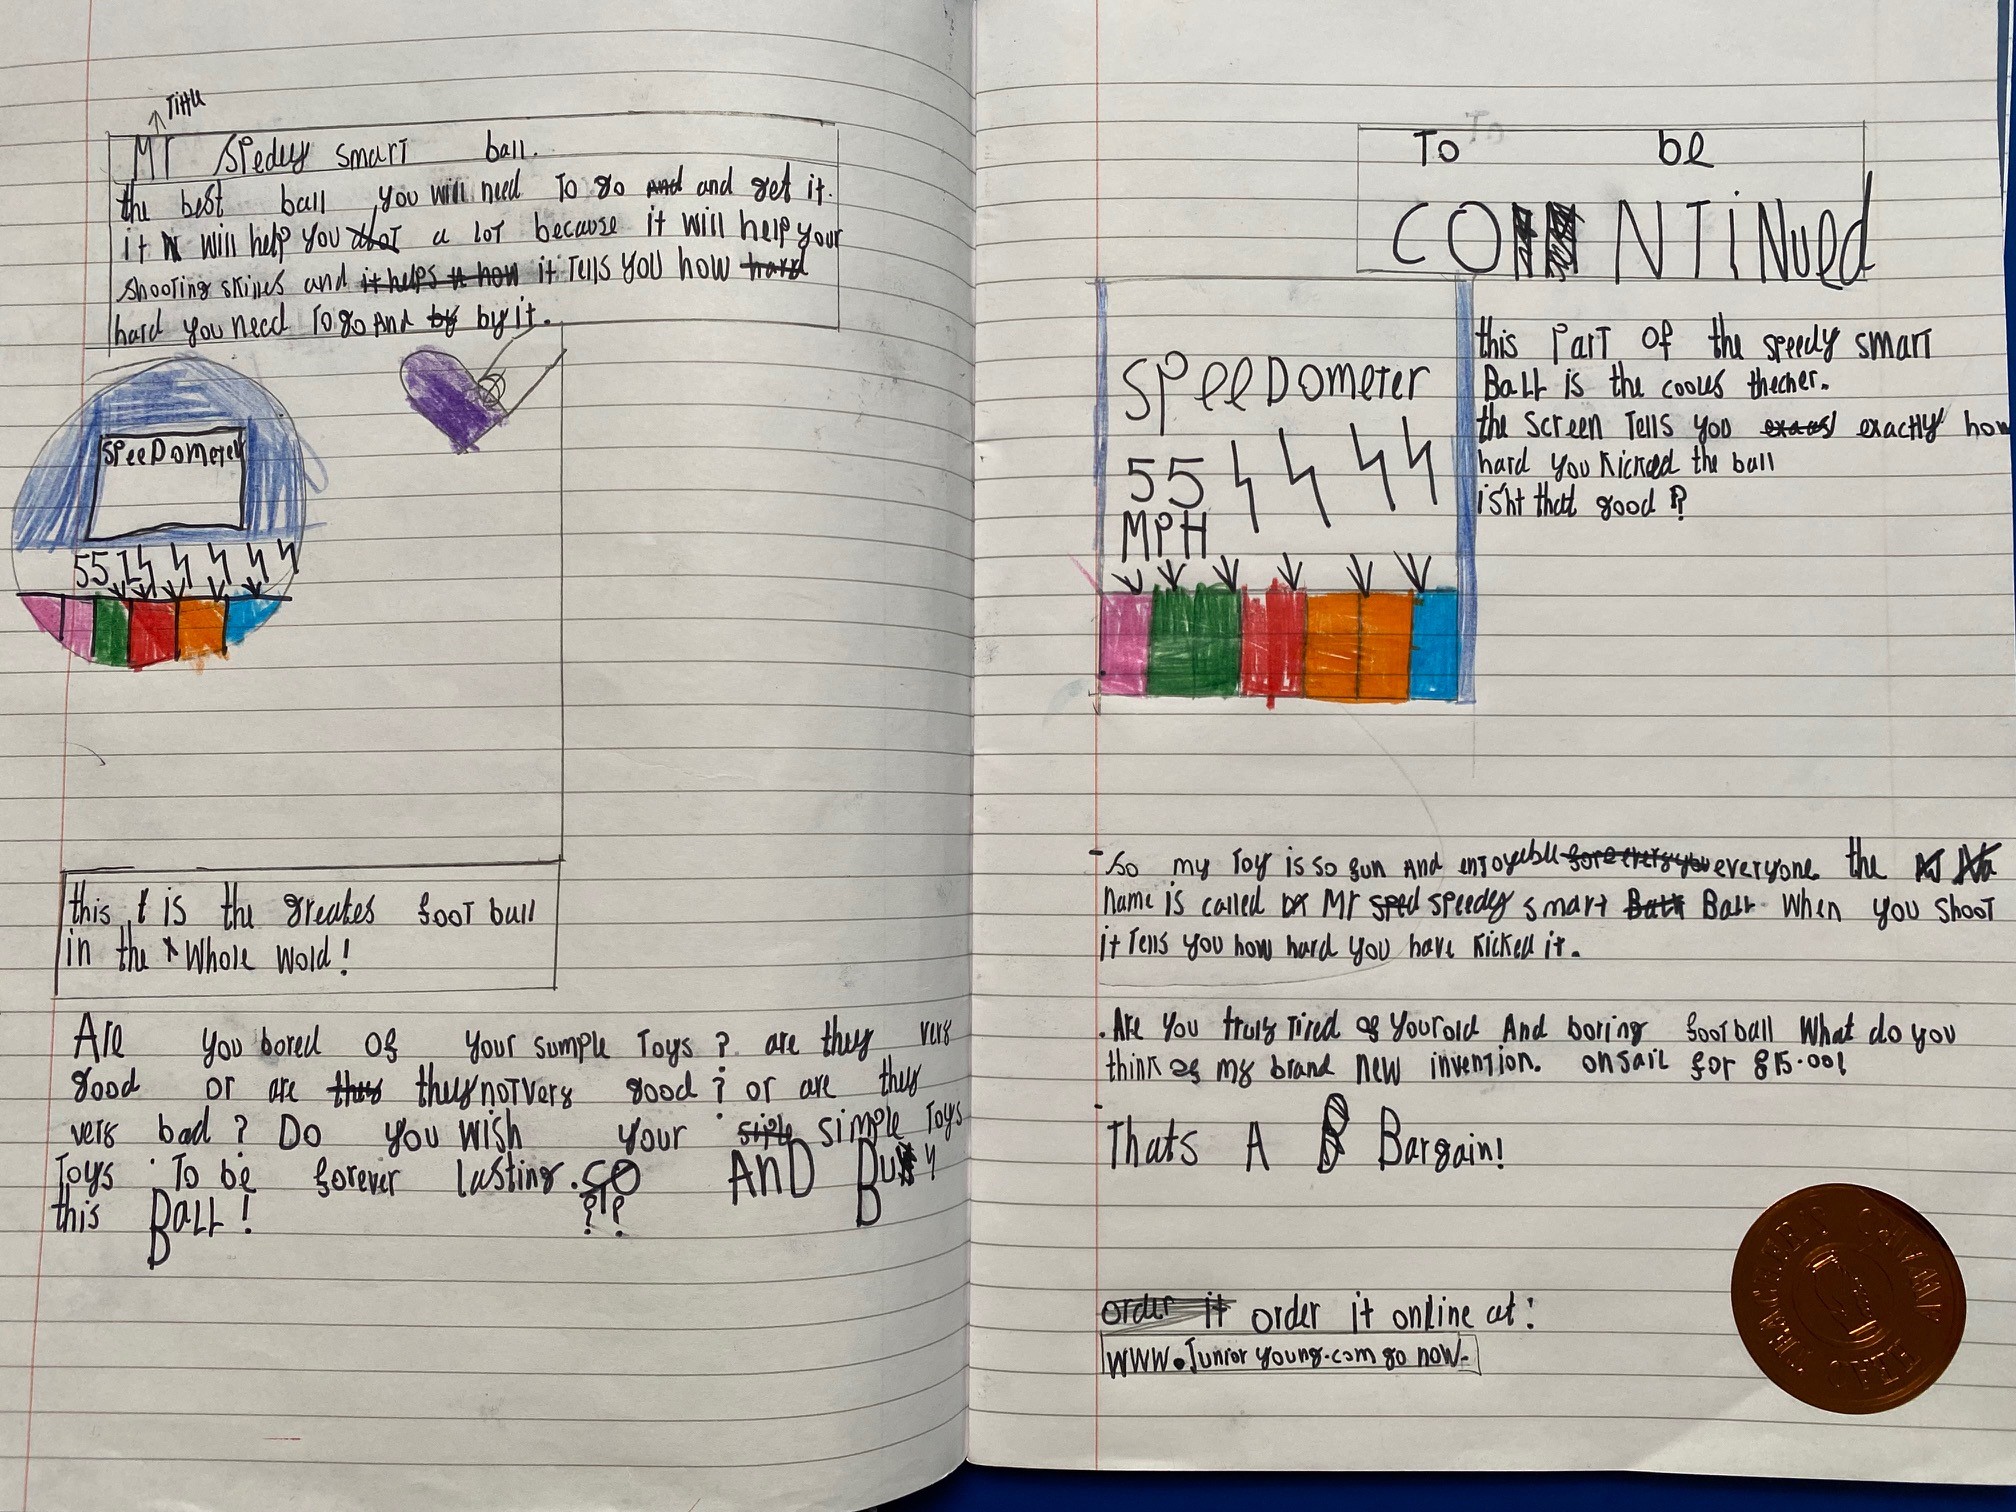 Tittle
Mr Spedey smart ball.
the best ball you will need To go and and get it.
it will help you alot a lot because it will help your
shooting skills and it helps it how it Tells you how hard
hard you need To go And by by it.
SPeeDometer
55
this is the greates foot ball
in the Whole wold!
Are you bored of your sumple Toys? are they very
good or are they they not very good? or are they
very bad? Do you wish your siple simple Toys
Toys To be forever lasting. GO AnD Buy
this Ball!
??
To be
CONTiNued
SpeeDometer
55
MPH
this Part of the speedy smart
Ball is the cooles thecher.
the screen Tells you exactly how
hard you kicked the ball
isht that good?
So my Toy is so fun And enjoyeble everyone. the
name is called Mr sped speedy smart Ball Ball When you shoot
it Tells you how hard you have kicked it.
Are you truly Tired of your old And boring football What do you
think of my brand new invention. on sail for £15.00!
Thats A B Bargain!
order it order it online at:
WWW.Junior young.com go now.